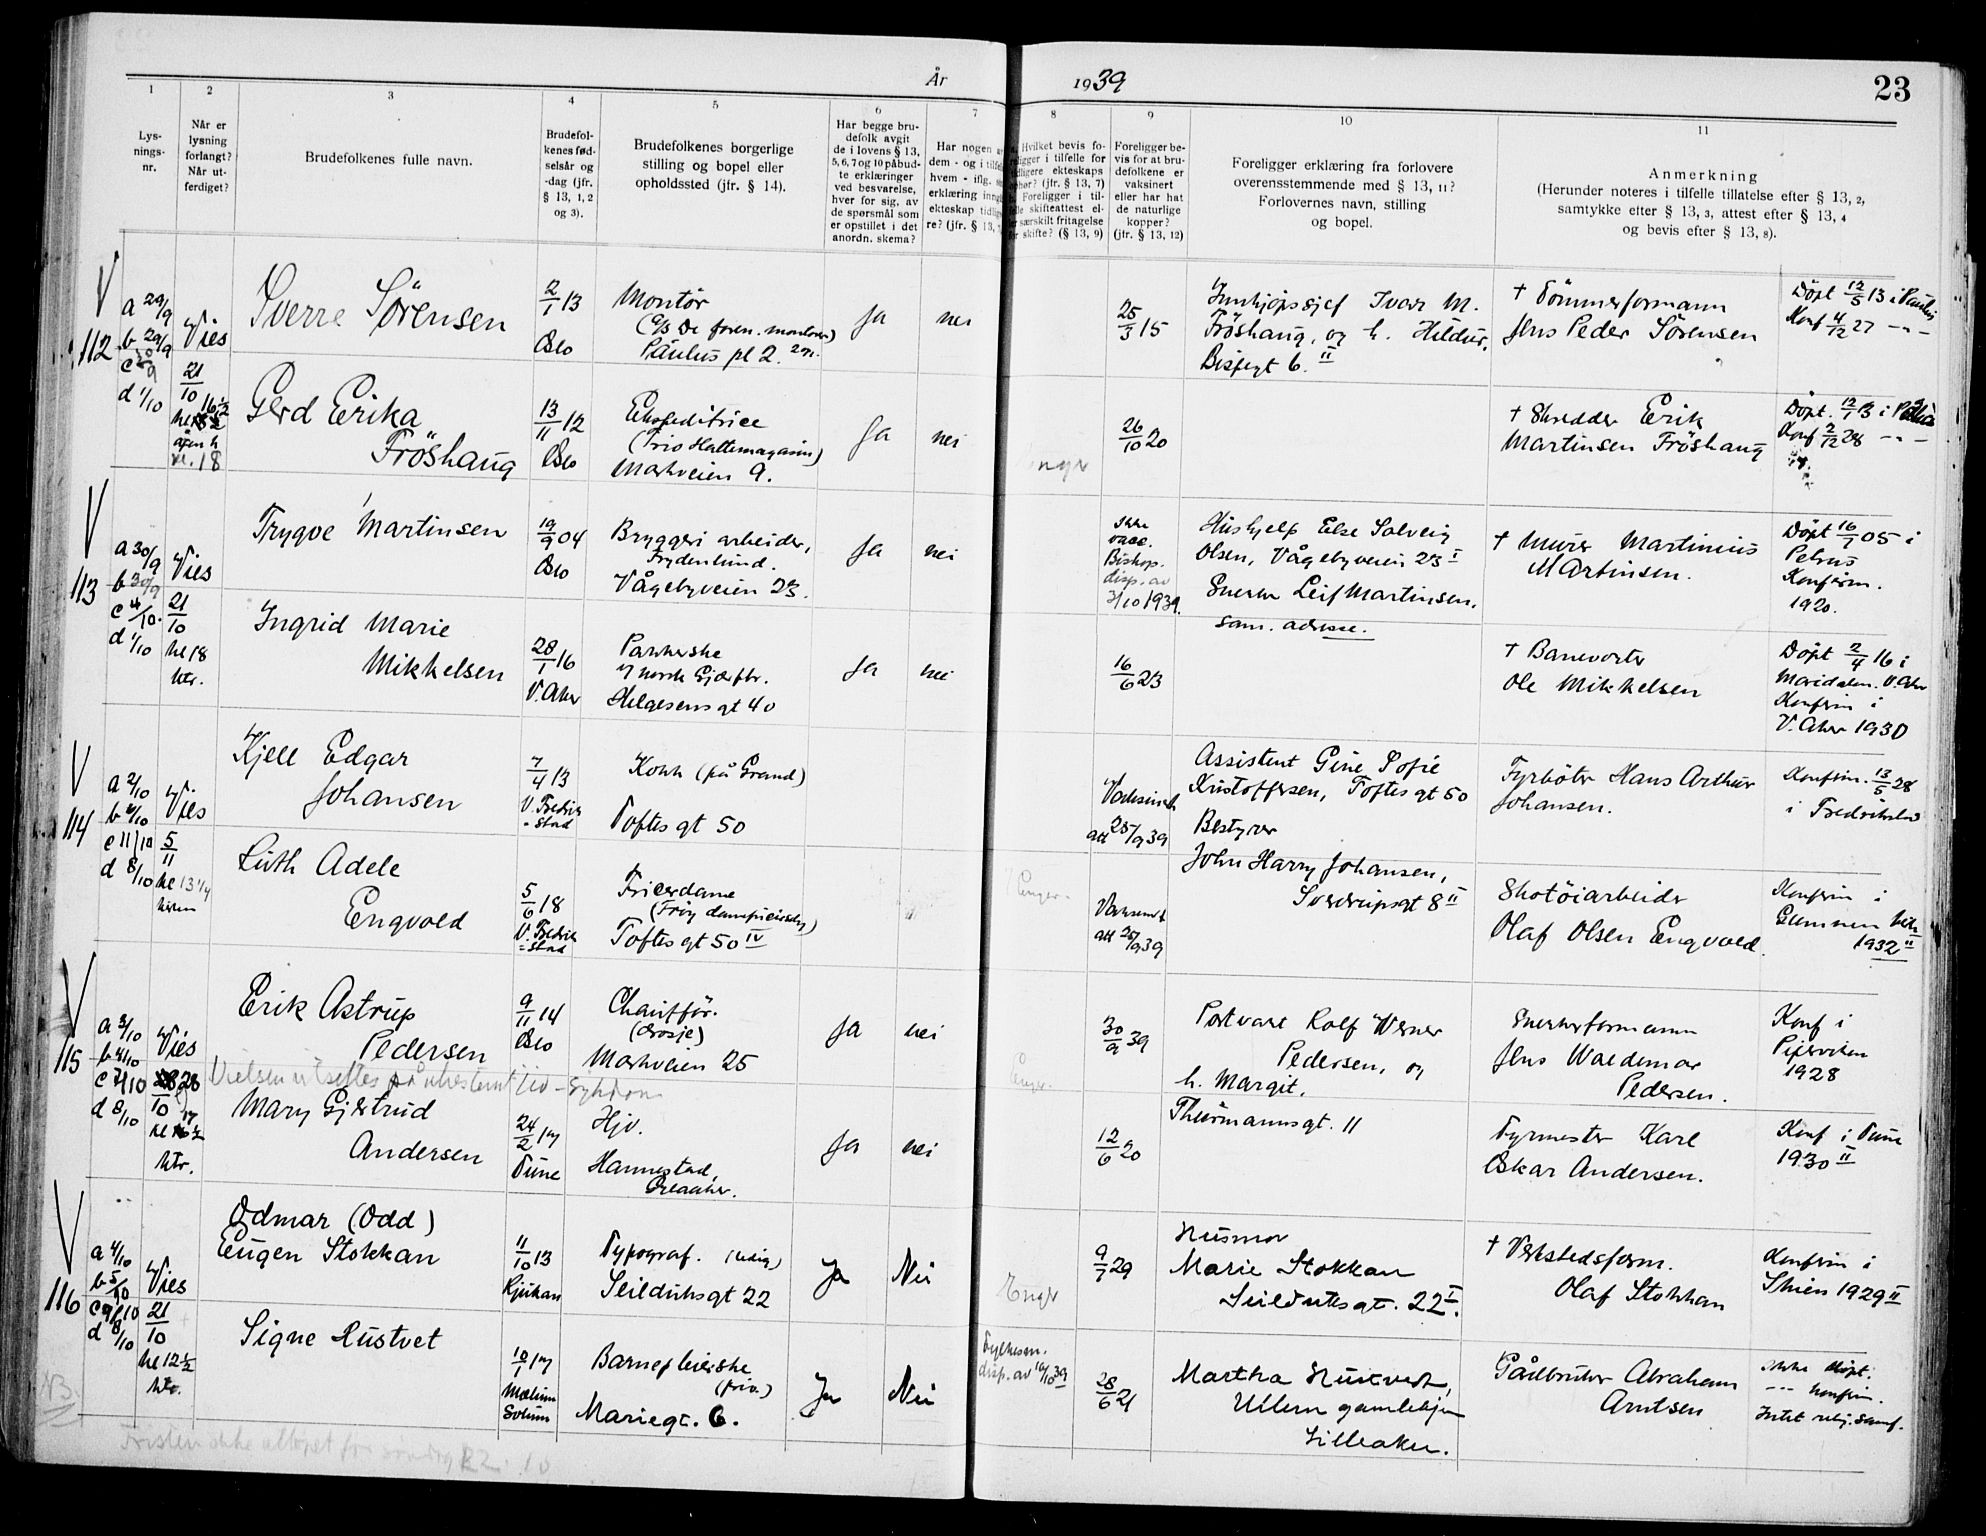 År 1939
23
1
Lys-
nings-
nr.
2
Når er
lysning
forlangt?
Når ut-
ferdiget?
3
Brudefolkenes fulle navn.
4
Brudefol-
kenes fød-
selsår og
-dag (jfr.
§ 13, 1, 2
og 3).
5
Brudefolkenes borgerlige
stilling og bopel eller
opholdssted (jfr. § 14).
6
Har begge bru-
defolk avgit
de i lovens § 13,
5, 6, 7 og 10 påbud-
te erklæringer
ved besvarelse,
hver for sig, av
de spørsmål som
er opstillet i det
anordn. skema?
7
Har nogen
dem - og i
hvem - iflg.
erklæring
ekteskap
re? (jfr. § 13,
8
Hvilket bevis fo-
i tilfelle for
ekteskaps
(jfr. § 13, 7)
Foreligger i til-
skifteattest el-
særskilt fritagelse
skifte? (§ 13, 9)
9
Foreligger be-
vis for at bru-
defolkene er
vaksinert
eller har hat
de naturlige
kopper?
(jfr. § 13, 12)
10
Foreligger erklæring fra forlovere
overensstemmende med § 13, 11?
Forlovernes navn, stilling
og bopel.
11
Anmerkning
(Herunder noteres i tilfelle tillatelse efter § 13, 2,
samtykke efter § 13, 3, attest efter § 13, 4
og bevis efter § 13, 8).
V
112
a 29/9
b 29/9
c 30/9
d 1/10
Vies
21/10
kl. 18
Sverre Sörensen
2/1 13
Oslo
Montör
Paulus pl 2.
Ja
nei
25/3 15
Innkjøpssjef Ivar M.
Fröshaug, og h. Hildur.
Bispegt 6. II
† Tömmerformann
Jens Peder Sörensen
Döpt 12/5 13 i Paulus
Konf 4/12 27 -"-
Gerd Erika
Fröshaug
13/11 12
Oslo
Ekspeditrice
(Trio Hattemagasin)
Markveien 9.
Ja
nei
26/10 20
† Skredder Erik
Martinsen Fröshaug
Konf 2/12 28 -"-
V
113
a 30/9
b 30/9
c 4/10.
d 1/10
Vies
21/10
kl 18
ktr.
Trygve Martinsen
19/9 04
Oslo
Bryggeri arbeider,
Frydenlund.
Vågebyveien 23.
Ja
nei
Ikke
vacc.
Bishop.
disp. av
3/10 1939.
Hushjelp Else Solveig
Olsen, Vågebyveien 23 I
Snekker Leif Martinsen,
sam. adresse.
† Murer Martinius
Martinsen.
Döpt 16/7 05 i
Petrus
Konfirm.
1920.
Ingrid Marie
Mikkelsen
28/1 16
V. Aker
Pakkerske
Helgesens gt 40
Ja
nei
16/6 23
† Banevokter
Ole Mikkelsen
Döpt 2/4 16 i
Maridalen. V. Aker
Konfirm i
V. Aker 1930
V
114
a 2/10
b 4/10
c 11/10
d 8/10
Vies
5/11
kl 13 1/4
kirken
Kjell Edgar
Johansen
7/4 13
V. Fredrik
-stad
Kokk (på Grand)
Toftes gt 50
att 25/9 39
Assistent Gine Sofie
Kristoffersen, Toftes gt 50
Bestyrer
John Harry Johansen,
Sverdrupsgt 8 II
Fyrböter Hans Arthur
Johansen.
Konfirm. 13/5 28
i Fredrikstad
Ruth Adele
Engvold
5/6 18
V. Fredrik
-stad
Friserdame
Toftes gt 50 IV
att 25/9 39
Skotöiarbeider
Olaf Olsen Engvold.
Konfirm i
1932 II
V
115
a 3/10
b 4/10
c 7/10
d 8/10
Vies
28/10
ktr.
Erik Astrup
Pedersen
9/11 14
Oslo
Chaufför.
(drosje)
Markveien 25
Ja
nei
30/9 39
Rolf Werner
Pedersen, og
h. Margit.
Thurmannsgt. 11
Snekkerformann
Jens Waldemar
Pedersen.
Konf i
Piperviken
1928
Vielsen utsettes på ubestemt tid - Sykdom
Mary Gjertrud
Andersen
24/2 17
Tune
Hjv.
Hannestad,
Ja
nei
12/6 20
Fyrmester Karl
Oskar Andersen.
Konf i Tune
1930 II
V
116
a 4/10
b 5/10
c 9/10
d 8/10
Vies
21/10
kl 12 1/2
ktr.
Odmar (Odd)
Eugen Stokkan
11/10 13
Rjukan
Typograf. (ledig)
Seilduksgt 22
Ja
Nei
9/7 29
Husmor
Marie Stokkan
Seilduksgt. 22 I.
† Verkstedsform.
Olaf Stokkan
Konfirm i
Skien 1929 II
Signe Rustvet
10/1 17
Mælum
Solum
Barnepleierske
(priv.)
Mariegt. 6.
Ja
Nei
Fylkesm.
disp. av 14/10 39
28/6 21
Martha Hustvedt,
Ullern gamlehjem
Lilleaker.
Gårdbruker Abraham
Arntsen
Ikke döpt.
-"- konfirm.
Intet relig. samf.
NB.
Fristen ikke utløpet før søndag 22. 10